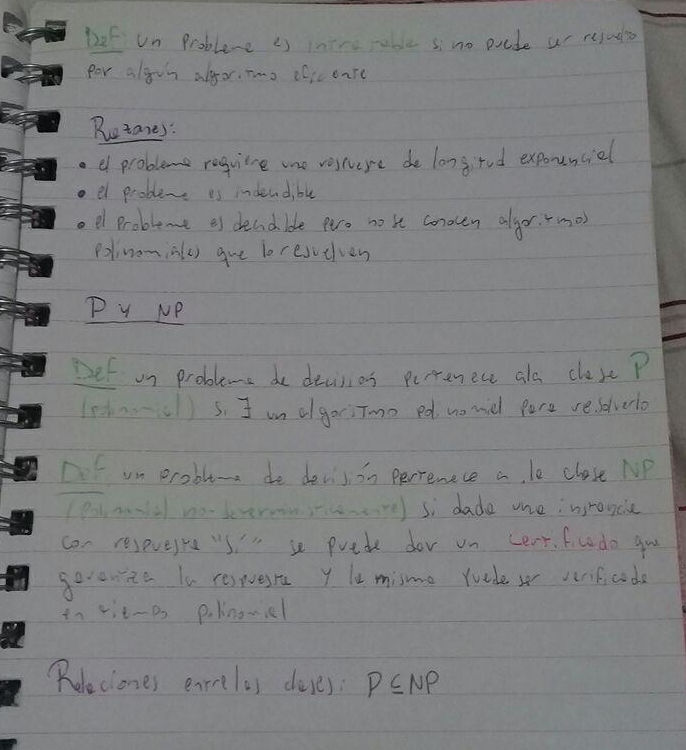 Def: un problema es intratable si no puede ser resuelto
por algún algoritmo eficiente
Razones:
• el problema requiere una respuesta de longitud exponencial
• el problema es indecidible
• el problema es decidible pero no se conocen algoritmos
polinomiales que lo resuelven
P y NP
Def un problema de decisión pertenece a la clase P
(polinomial) si ∃ un algoritmo polinomial para resolverlo
Def un problema de decisión pertenece a la clase NP
(polinomial no-determinísticamente) si dada una instancia
con respuesta "Si" se puede dar un certificado que
garantiza la respuesta y la misma puede ser verificada
en tiempo polinomial
Relaciones entre las clases: P ⊆ NP